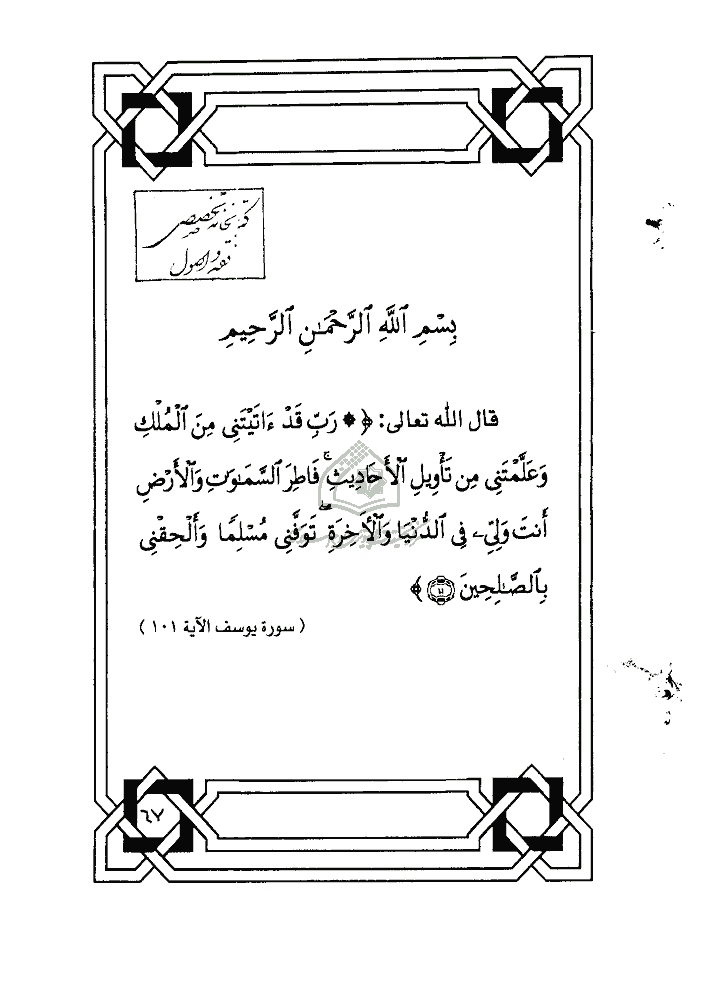 کتابخانه تخصصی
فقه و اصول
بِسْمِ ٱللَّهِ ٱلرَّحْمَٰنِ ٱلرَّحِيمِ
قال الله تعالى: ﴿ ۞ رَبِّ قَدْ ءَاتَيْتَنِى مِنَ ٱلْمُلْكِ
وَعَلَّمْتَنِى مِن تَأْوِيلِ ٱلْأَحَادِيثِ ۚ فَاطِرَ ٱلسَّمَٰوَٰتِ وَٱلْأَرْضِ
أَنتَ وَلِىِّۦ فِى ٱلدُّنْيَا وَٱلْـَٔاخِرَةِ ۖ تَوَفَّنِى مُسْلِمًا وَأَلْحِقْنِى
بِٱلصَّٰلِحِينَ ﴾
( سورة يوسف الآية ١٠١ )
٦٧